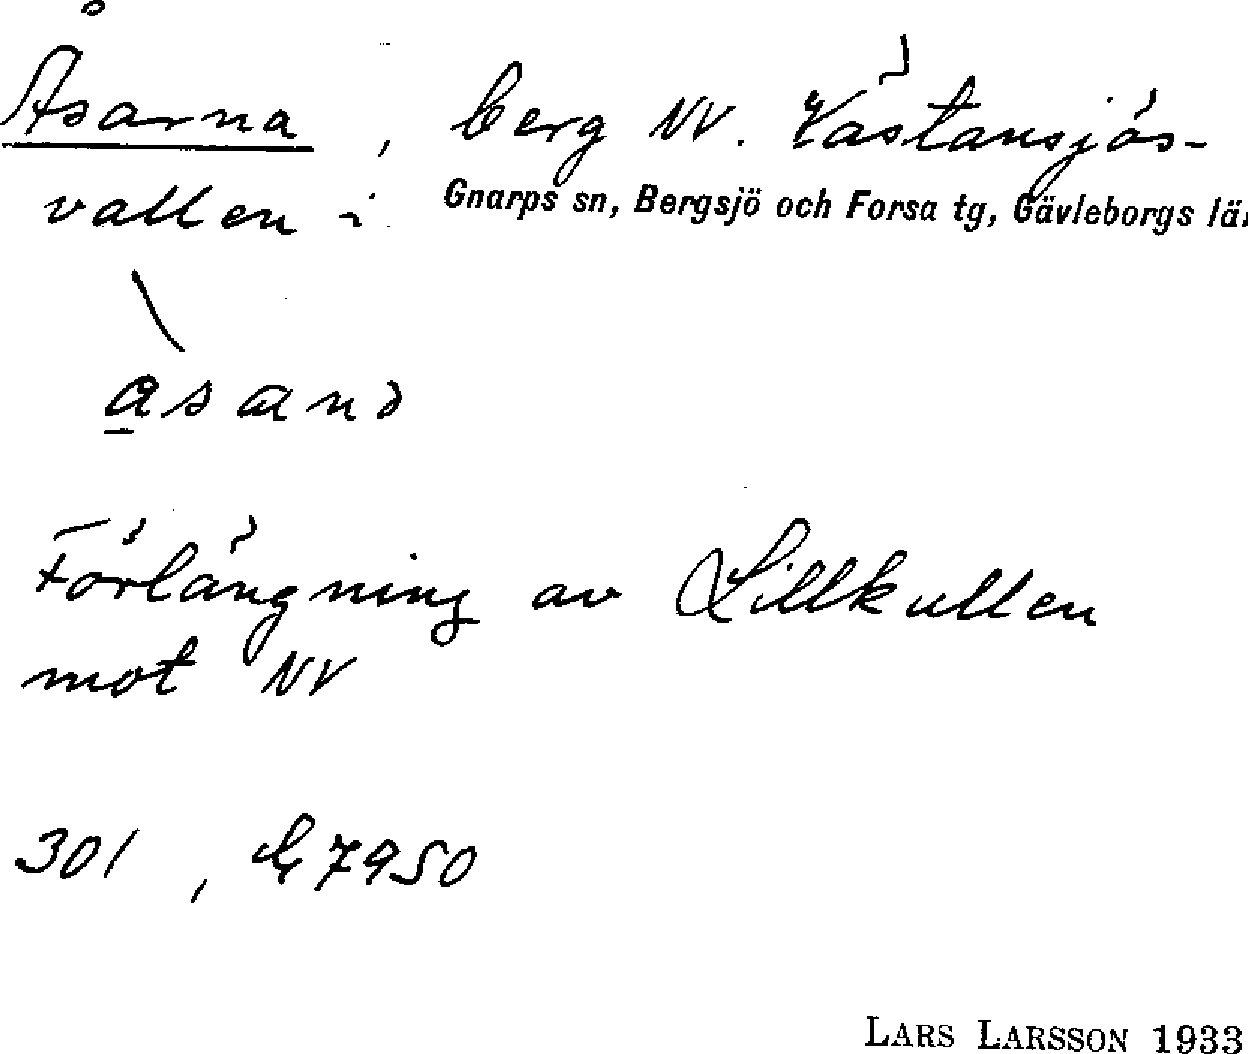 Åsarna, berg NV. Västansjös-
vallen i Gnarps sn, Bergsjö och Forsa tg, Gävleborgs lä
Förlängning av Lillkullen
mot NV
301, 7950
LARS LARSSON 1933